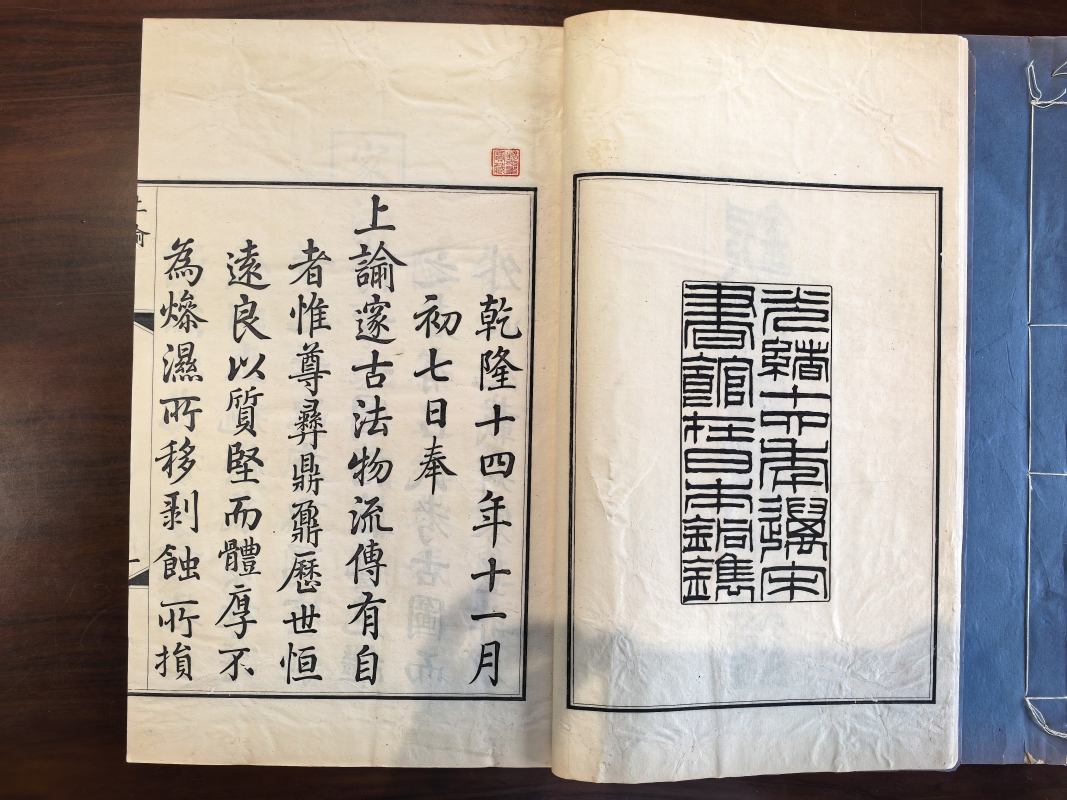 光緒十四年邁宋
書館在日本銅鐫
乾隆十四年十一月
初七日奉
上諭邃古法物流傳有自
者惟尊彝鼎鼐歷世恒
遠良以質堅而體厚不
為燥濕所移剥蝕所損
上諭